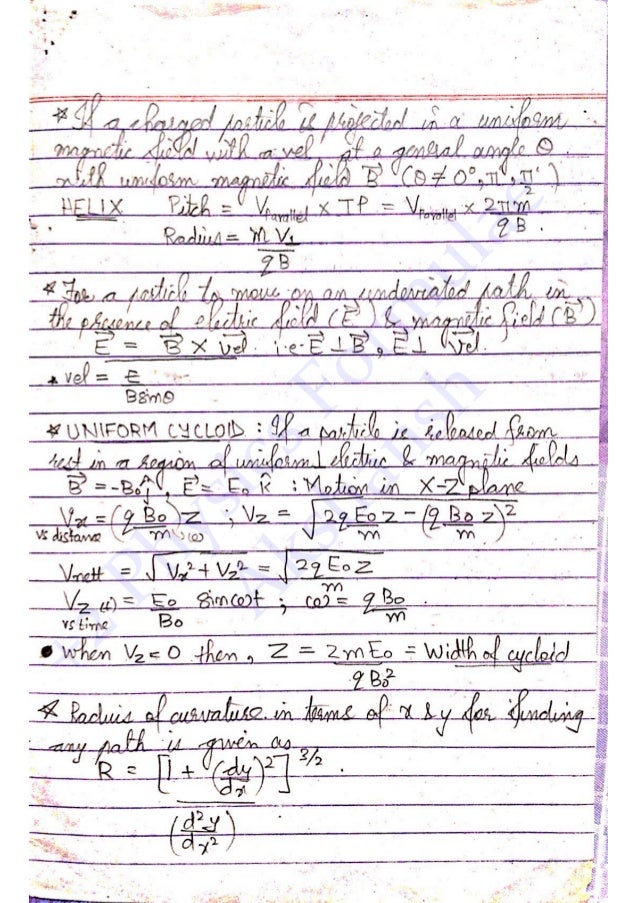 * If a charged particle is projected in a uniform
magnetic field with a vel at a general angle θ
with uniform magnetic field B⃗ (θ ≠ 0°, π, π/2)
HELIX Pitch = V_parallel × TP = V_parallel × 2πm/qB.
Radius = mV⊥/qB
* For a particle to move on an undeviated path in
the presence of electric field (E⃗) & magnetic field (B⃗)
E⃗ = B⃗ × vel⃗. i.e. E⃗ ⊥ B⃗, E⃗ ⊥ vel⃗.
* vel = E/Bsinθ
* UNIFORM CYCLOID : If a particle is released from
rest in a region of uniform ⊥ electric & magnetic fields
B⃗ = -B₀ĵ, E⃗ = E₀ k̂ : Motion in X-Z plane
Vx = (qB₀/m) Z ; Vz = √(2qE₀z/m - (qB₀z/m)²)
vs distance (ω)
Vnett = √(Vx² + Vz²) = √(2qE₀z/m)
Vz(t) = E₀/B₀ sinωt ; ω = qB₀/m
vs time
• When Vz = 0 then, Z = 2mE₀/qB₀² = Width of cycloid
* Radius of curvature in terms of x & y for finding
any path is given as
R = [1 + (dy/dx)²]^3/2 / (d²y/dx²).
Physics Formulae
Akshansh